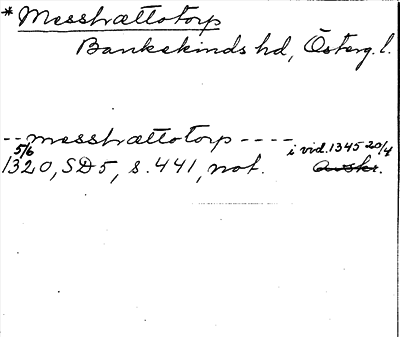 * Messhættotorp
Bankekinds hd, Österg. l.
-- messhættotorp ---- i vid. 1345 20/4
5/6
1320, SD5, s. 441, not. avskr.